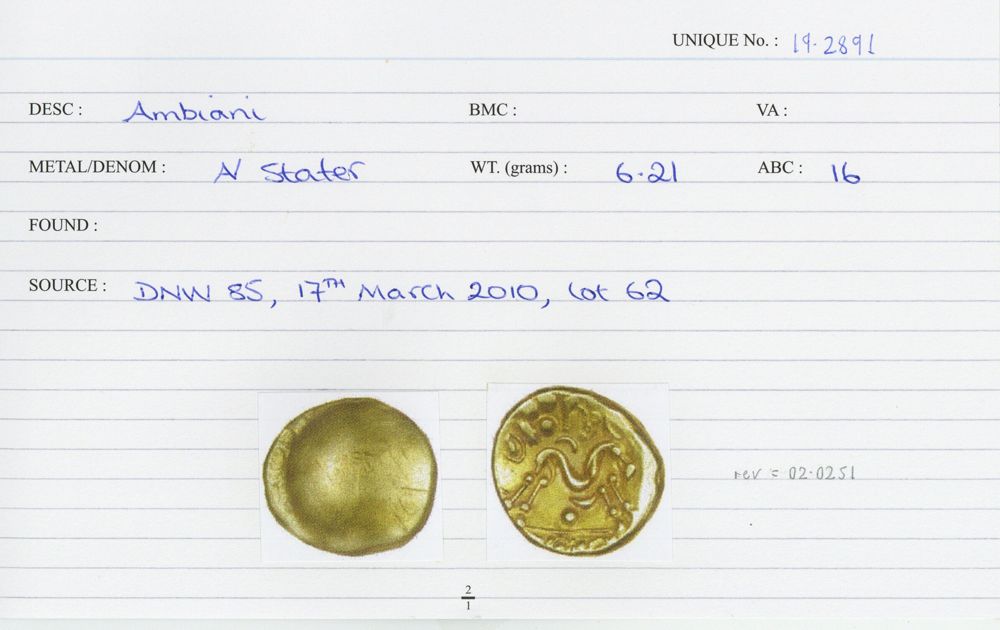 UNIQUE No. : 19.2891
DESC : Ambiani BMC : VA :
METAL/DENOM : AV Stater WT. (grams) : 6.21 ABC : 16
FOUND :
SOURCE : DNW 85, 17TH March 2010, Lot 62
rev = 02.0251
2
1